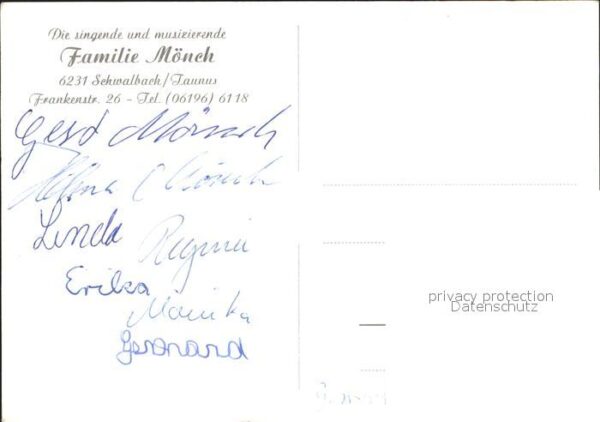 Die singende und musizierende
Familie Mönch
6231 Schwalbach/Taunus
Frankenstr. 26 – Tel. (06196) 6118
Gerd Mönch
Helena Mönch
Linda Regina
Erika
Monika
Gerhard
privacy protection
Datenschutz